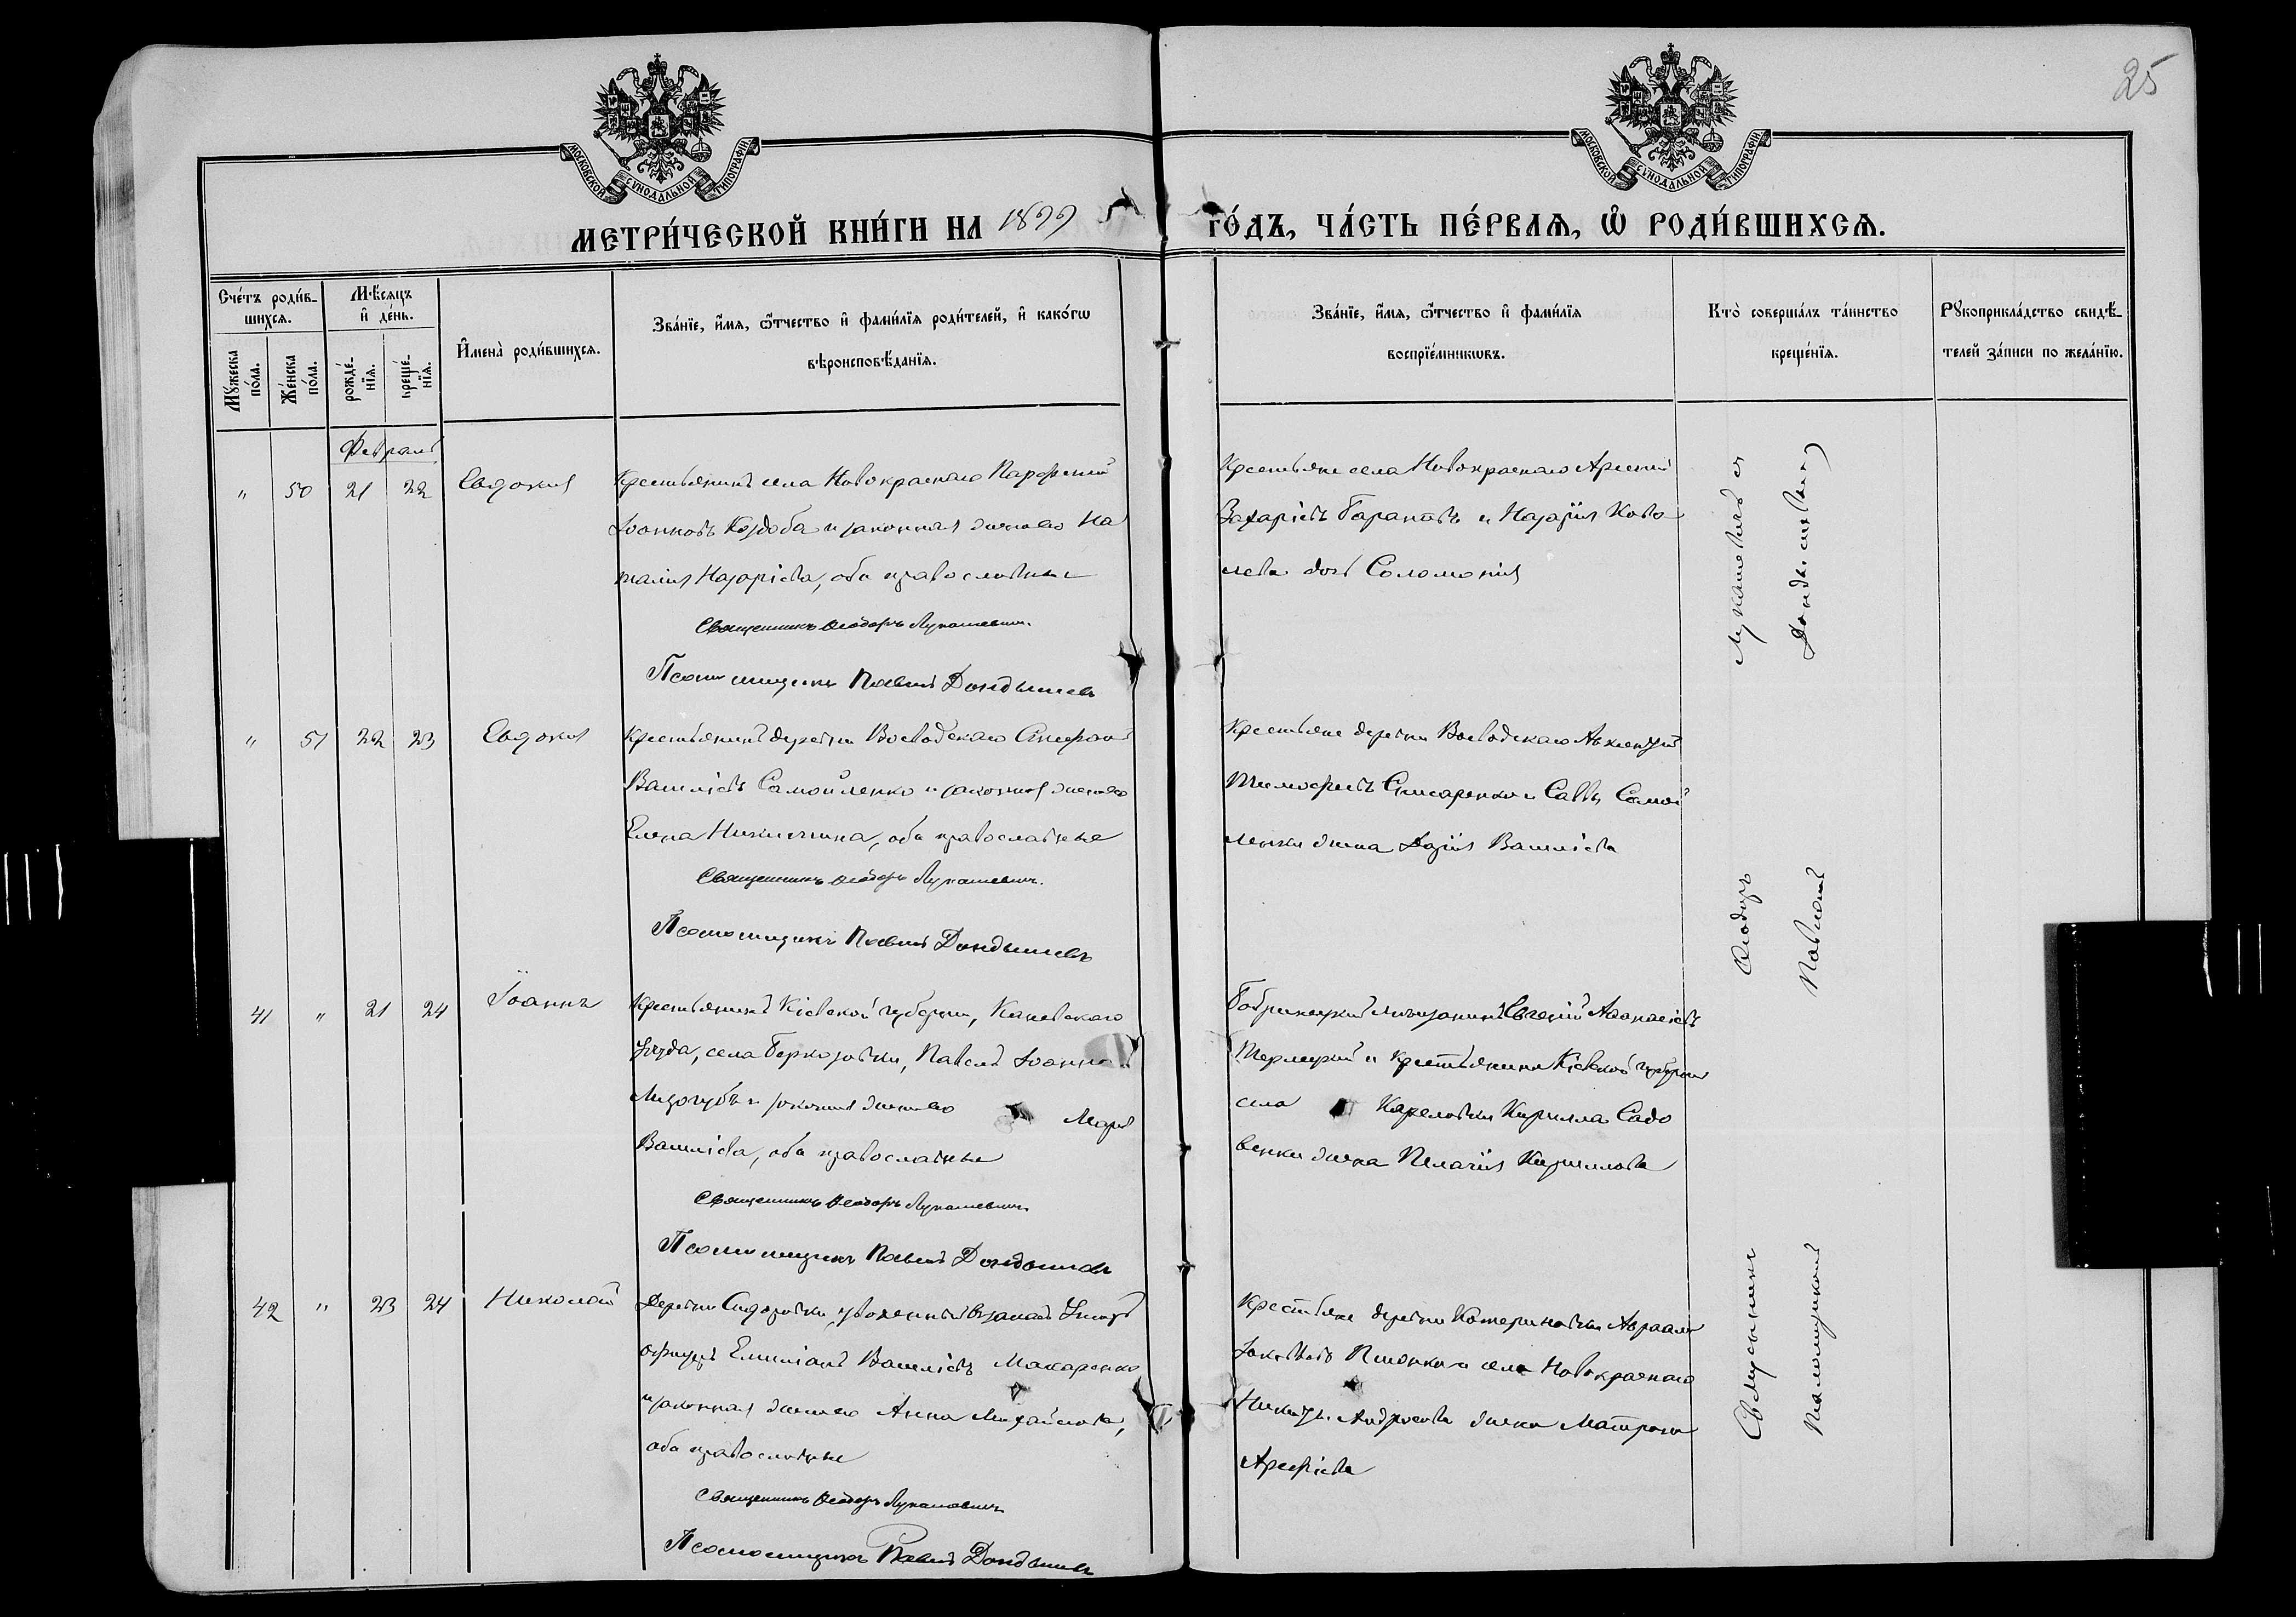 25
МОСКОВСКОЙ СѴНОДАЛЬНОЙ ТИПОГРАФІИ
МОСКОВСКОЙ СѴНОДАЛЬНОЙ ТИПОГРАФІИ
МЕТРИ́ЧЕСКОЙ КНИ́ГИ НА 1899 ГО́ДЪ, ЧА́СТЬ ПЕ́РВАѦ, Ѡ҆ РОДИ́ВШИХСѦ.
Сче́тъ роди́в-
шихсѧ.
Мꙋ́жеска
по́ла.
Же́нска
по́ла.
Мѣ́сѧцъ
и҆ де́нь.
рожде́-
нїѧ.
креще́-
нїѧ.
И҆мена̀ роди́вшихсѧ.
Зва́нїе, и҆́мѧ, ѻ҆́тчество и҆ фами́лїѧ роди́телей, и҆ како́гѡ
вѣроисповѣ́данїѧ.
Зва́нїе, и҆́мѧ, ѻ҆́тчество и҆ фами́лїѧ
воспрїе́мникѡвъ.
Кто̀ соверша́лъ та́инство
креще́нїѧ.
Рꙋкоприкла́дство свидѣ́-
телей за́писи по жела́нїю.
Февраль
" 50 21 22 Евдокія
Крестьянинъ села Новокраснаго Парфеній
Іоанновъ Коздоба и законная жена его На
талія Назаріева, оба православные
Священникъ Ѳеодоръ Лукашевичъ.
Псаломщикъ Павелъ Дондышевъ
Крестьяне села Новокраснаго Арсеній
Захаріевъ Барановъ и Назарія Кова
лева дочь Соломонія
" 51 22 23 Евдокія
Крестьянинъ деревни Воеводскаго Стефанъ
Василіевъ Самойленко и законная жена его
Елена Никитина, оба православные
Священникъ Ѳеодоръ Лукашевичъ.
Псаломщикъ Павелъ Дондышевъ
Крестьяне деревни Воеводскаго Авксентій
Тимофеевъ Слисаренко и Саввы Самой
ленки жена Дарія Василіева
41 " 21 24 Іоаннъ
Крестьянинъ Кіевской губерніи, Каневскаго
уѣзда, села Беркозовки, Павелъ Іоанновъ
Лизогубъ и законная жена его Марія
Василіева, оба православные
Священникъ Ѳеодоръ Лукашевичъ.
Псаломщикъ Павелъ Дондышевъ
Бобринецкій мѣщанинъ Евгеній Аѳанасіевъ
Терлецкій и крестьянина Кіевской губерніи
села Кареловки Кирилла Садо
венки жена Пелагія Кириллова
42 " 23 24 Николай
Деревни Сидоровки, уволенный въ запасъ Унтеръ
офицеръ Емиліанъ Василіевъ Макаренко
и законная жена его Анна Михайлова,
оба православные
Священникъ Ѳеодоръ Лукашевичъ
Псаломщикъ Павелъ Дондышевъ
Крестьяне деревни Катериновки Авраамъ
Іаковлевъ Пшонка и села Новокраснаго
Никиты Андросова жена Матрона
Арефіева
Священникъ Ѳеодоръ Лукашевичъ съ
Псаломщикомъ Павломъ Дондышевымъ